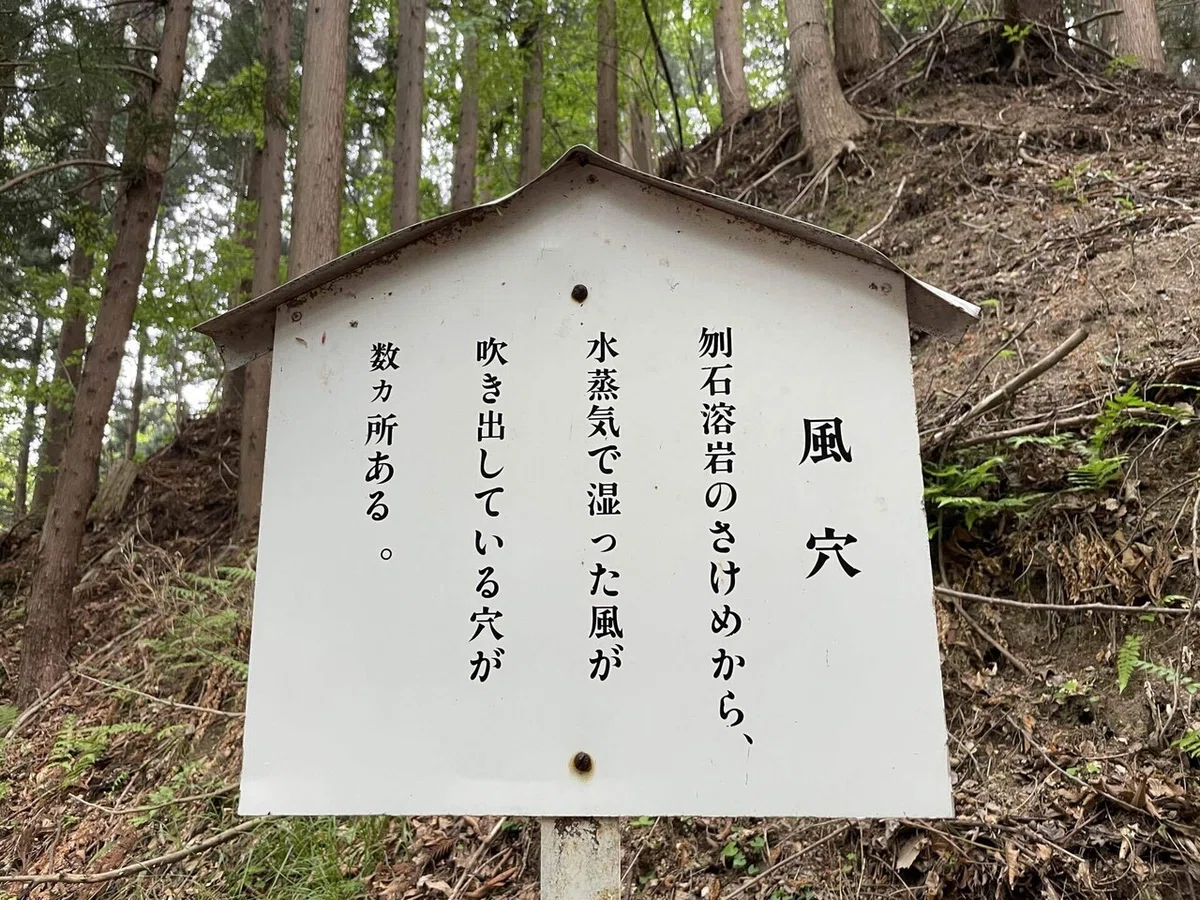 風穴
刎石溶岩のさけめから、
水蒸気で湿った風が
吹き出している穴が
数ヵ所ある。